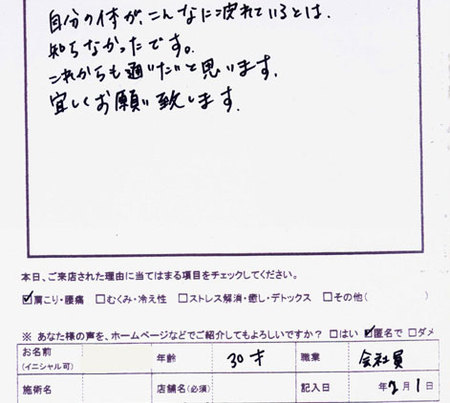 自分の体が、こんなに疲れているとは、
知らなかったです。
これからも通いたいと思います。
宜しくお願い致します。
本日、ご来店された理由に当てはまる項目をチェックしてください。
☑肩こり・腰痛 □むくみ・冷え性 □ストレス解消・癒し・デトックス □その他( )
※ あなた様の声を、ホームページなどでご紹介してもよろしいですか？ □はい ☑匿名で □ダメ
お名前 (イニシャル可) 年齢 30才 職業 会社員
施術名 店舗名(必須) 記入日 年2月1日